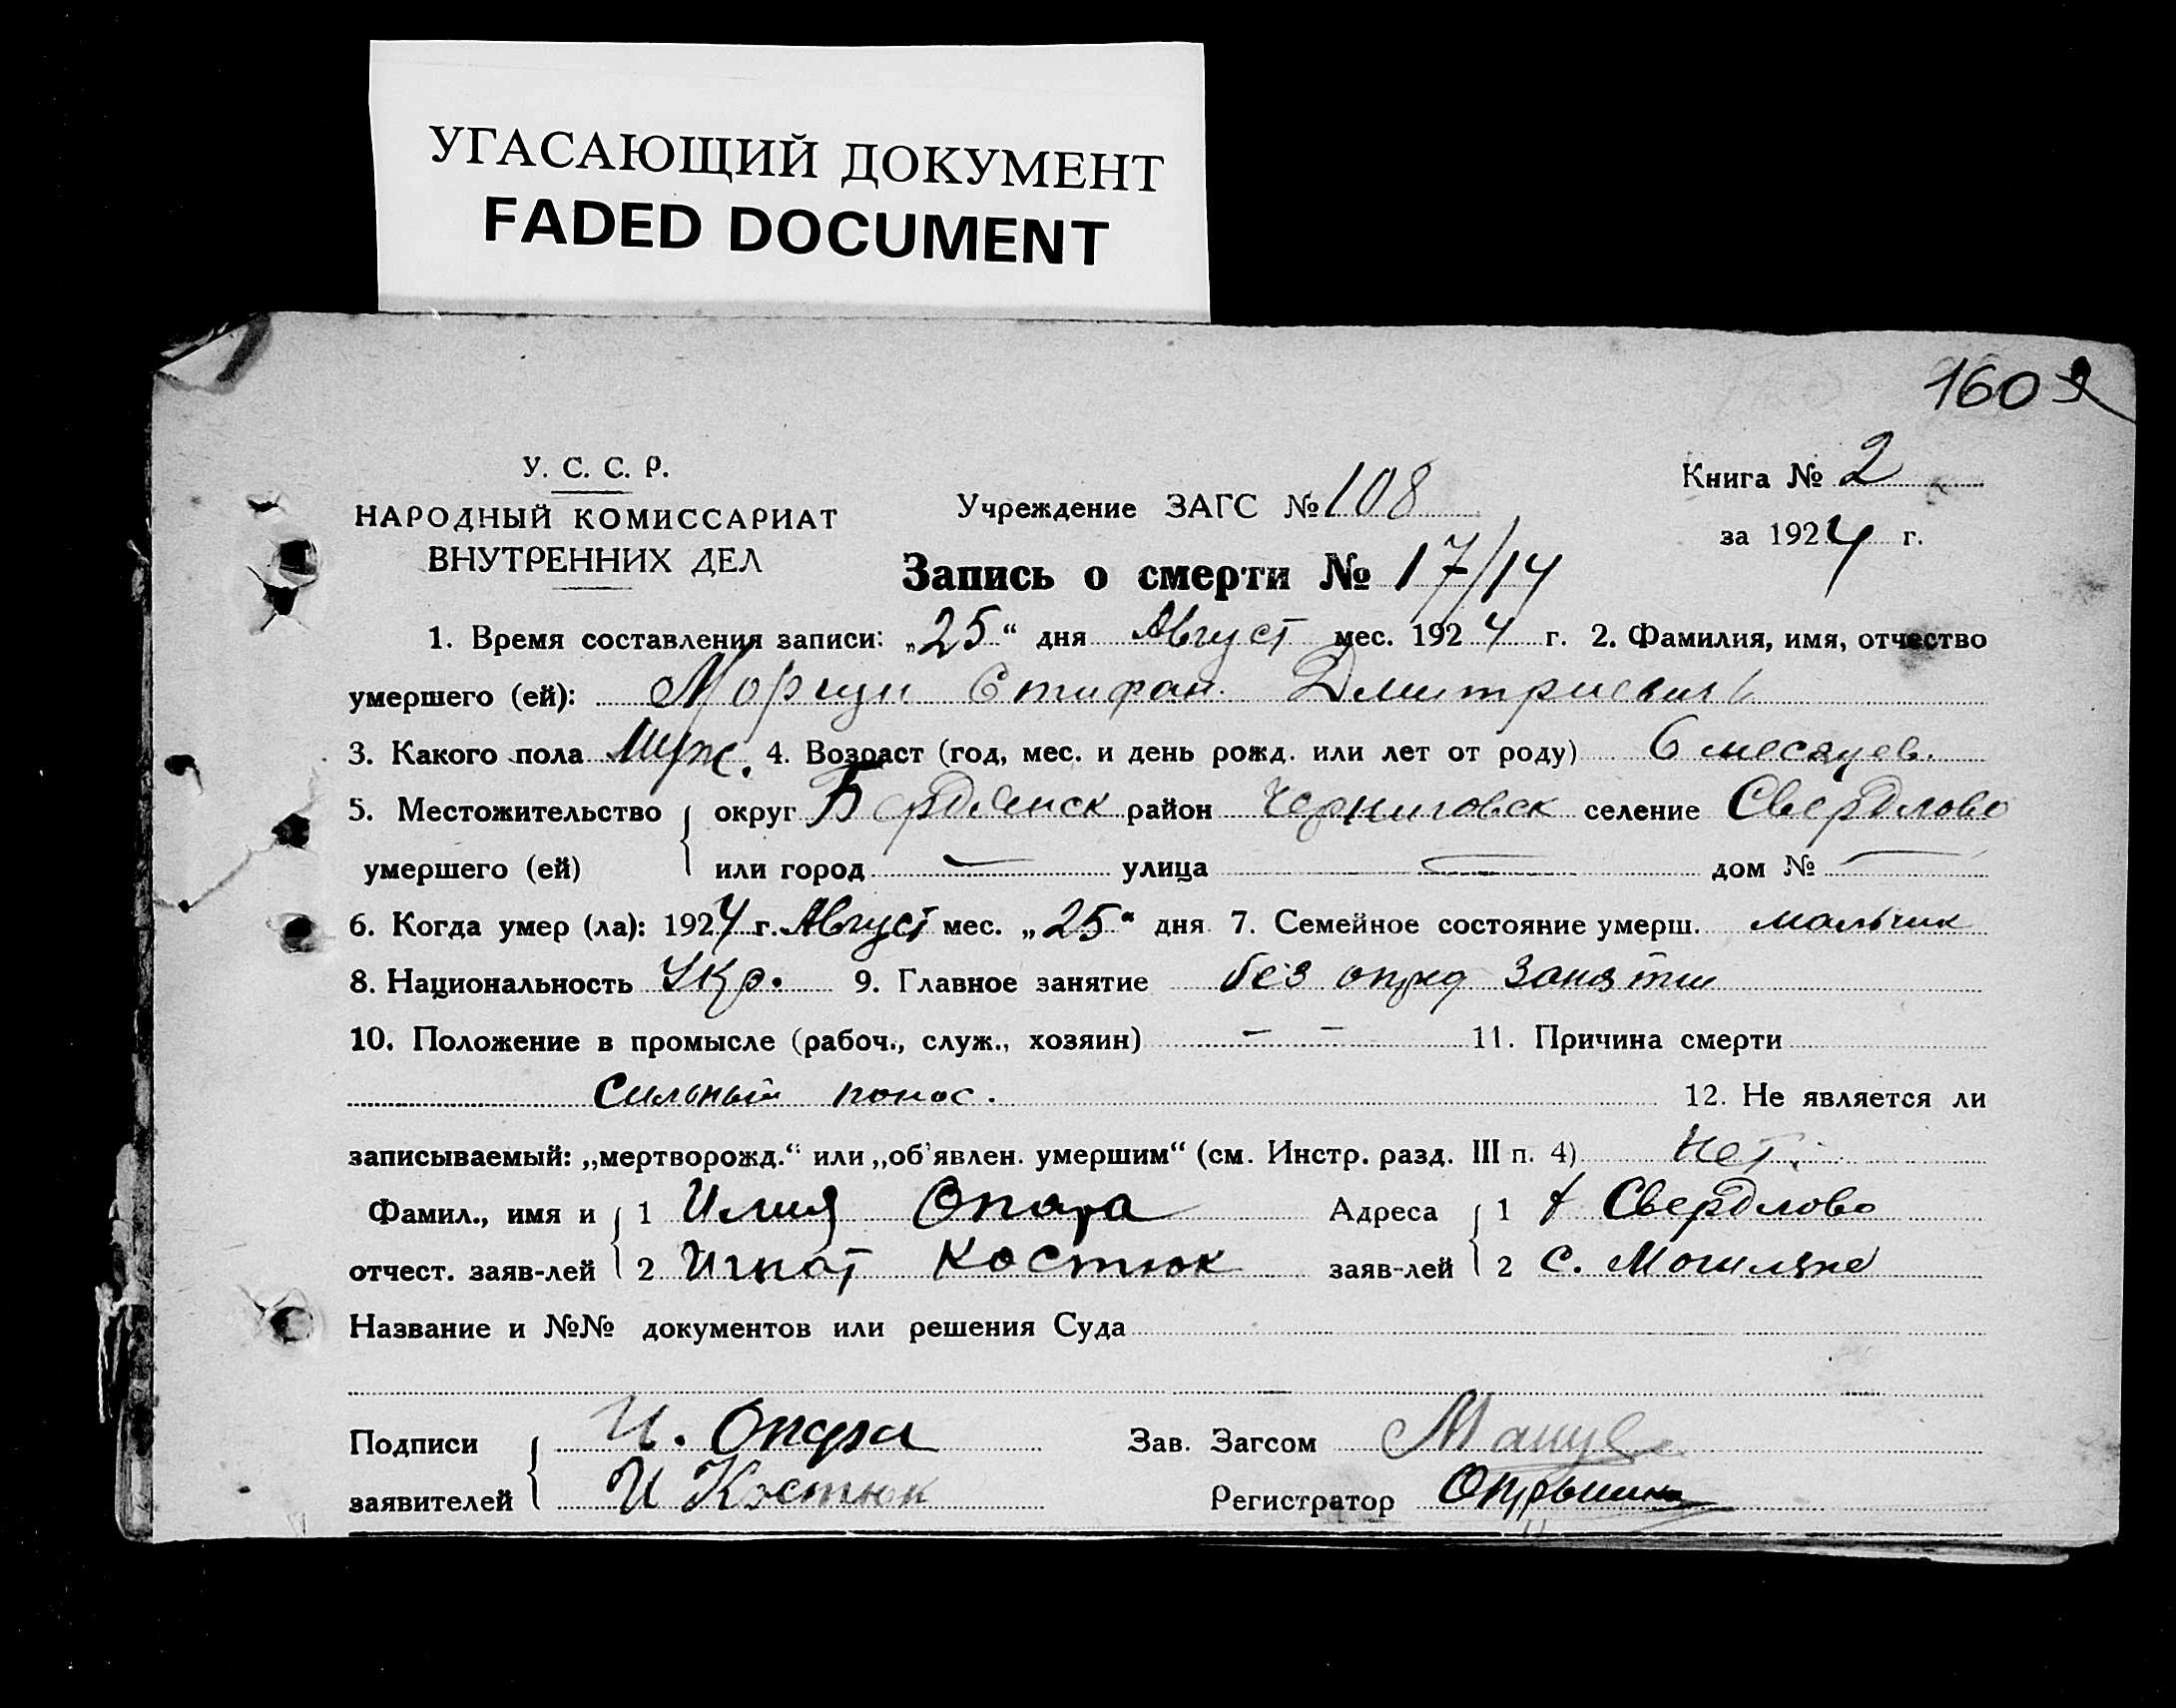 УГАСАЮЩИЙ ДОКУМЕНТ
FADED DOCUMENT
160
У. С. С. Р.
НАРОДНЫЙ КОМИССАРИАТ
ВНУТРЕННИХ ДЕЛ
Учреждение ЗАГС № 108
Книга № 2
за 1924 г.
Запись о смерти № 17/14
1. Время составления записи: „25“ дня Август мес. 1924 г. 2. Фамилия, имя, отчество
умершего (ей): Стифан Дмитриевич
3. Какого пола Муж. 4. Возраст (год, мес. и день рожд. или лет от роду) 6 месяцев.
5. Местожительство округ Бердянск район Черниговск селение Свердлово
умершего (ей) или город — улица — дом № —
6. Когда умер (ла): 1924 г. Август мес. „25“ дня 7. Семейное состояние умерш. мальчик
8. Национальность Укр. 9. Главное занятие без опред занятии
10. Положение в промысле (рабоч., служ., хозяин) — — 11. Причина смерти
Сильный понос.
12. Не является ли
записываемый: „мертворожд.“ или „об'явлен. умершим“ (см. Инстр. разд. III п. 4) Нет.
Фамил., имя и 1 Илия Опара Адреса 1 Свердлово
отчест. заяв-лей 2 Игнат Костюк заяв-лей 2 с. Могиляне
Название и №№ документов или решения Суда
Подписи И. Опара Зав. Загсом
заявителей И Костюк Регистратор